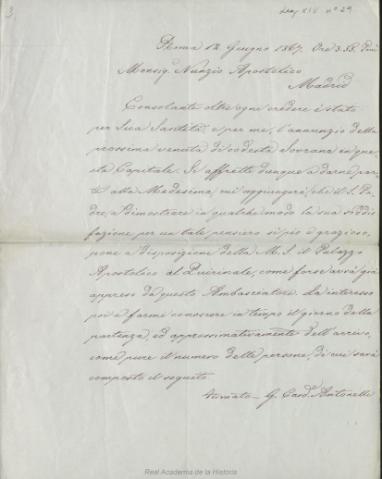 3
Leg XIV nº 29
Roma 12 Giugno 1867. Ore 3. Pom
Monsig. Nunzio Apostolico
Madrid
Consolante oltre ogni credere è stato
per Sua Santità, e per me, l'annunzio della
prossima venuta di codesta Sovrana in que
sta Capitale. Si affretti dunque a darne par
te alla Medesima, ed aggiungerà, che il S. Pa
dre, a dimostrare in qualche modo la sua soddis
fazione per un tale pensiero sì pio e grazioso,
pone a disposizione della M. S. il Palazzo
Apostolico al Quirinale, come forse avrà già
appreso da questo Ambasciatore. La interesso
poi a farmi conoscere in tempo il giorno della
partenza, ed approssimativamente dell'arrivo,
come pure il numero delle persone, di cui sarà
composto il seguito.
Firmato - G. Card. Antonelli
Real Academia de la Historia